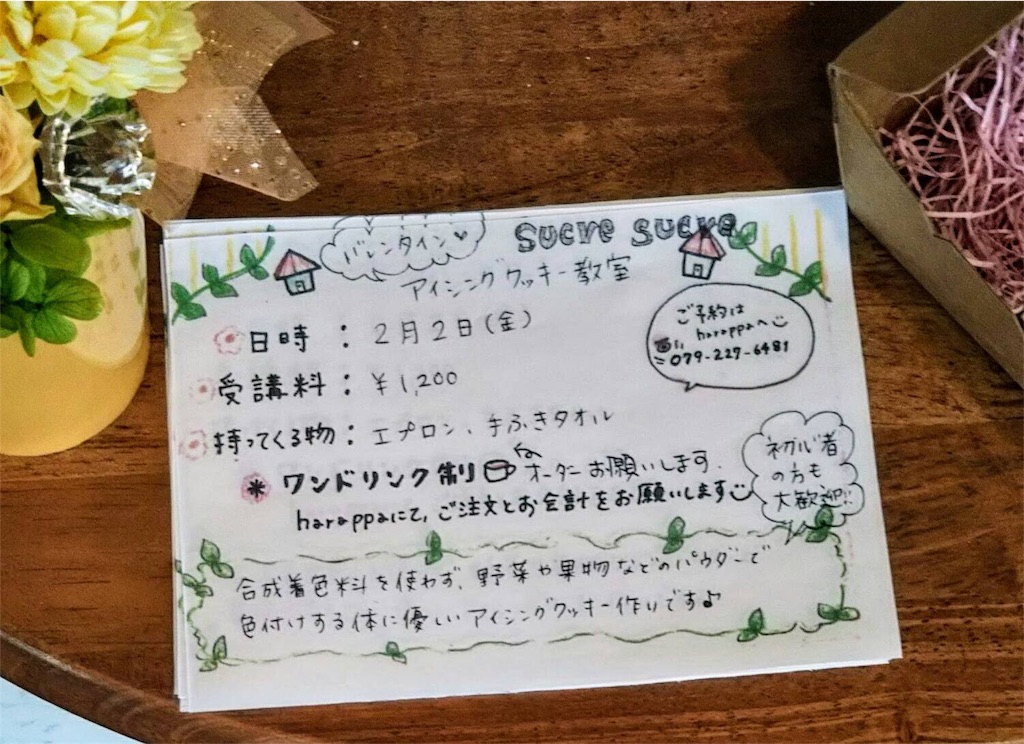 バレンタイン♥
sucre sucre
アイシングクッキー教室
日時：2月2日(金)
ご予約は
harappaへ
079-227-6481
受講料：¥1,200
持ってくる物：エプロン、手ふきタオル
＊ワンドリンク制 オーダーお願いします.
harappaにて、ご注文とお会計をお願いします
初心者
の方も
大歓迎!!
合成着色料を使わず、野菜や果物などのパウダーで
色付けする体に優しいアイシングクッキー作りです♪